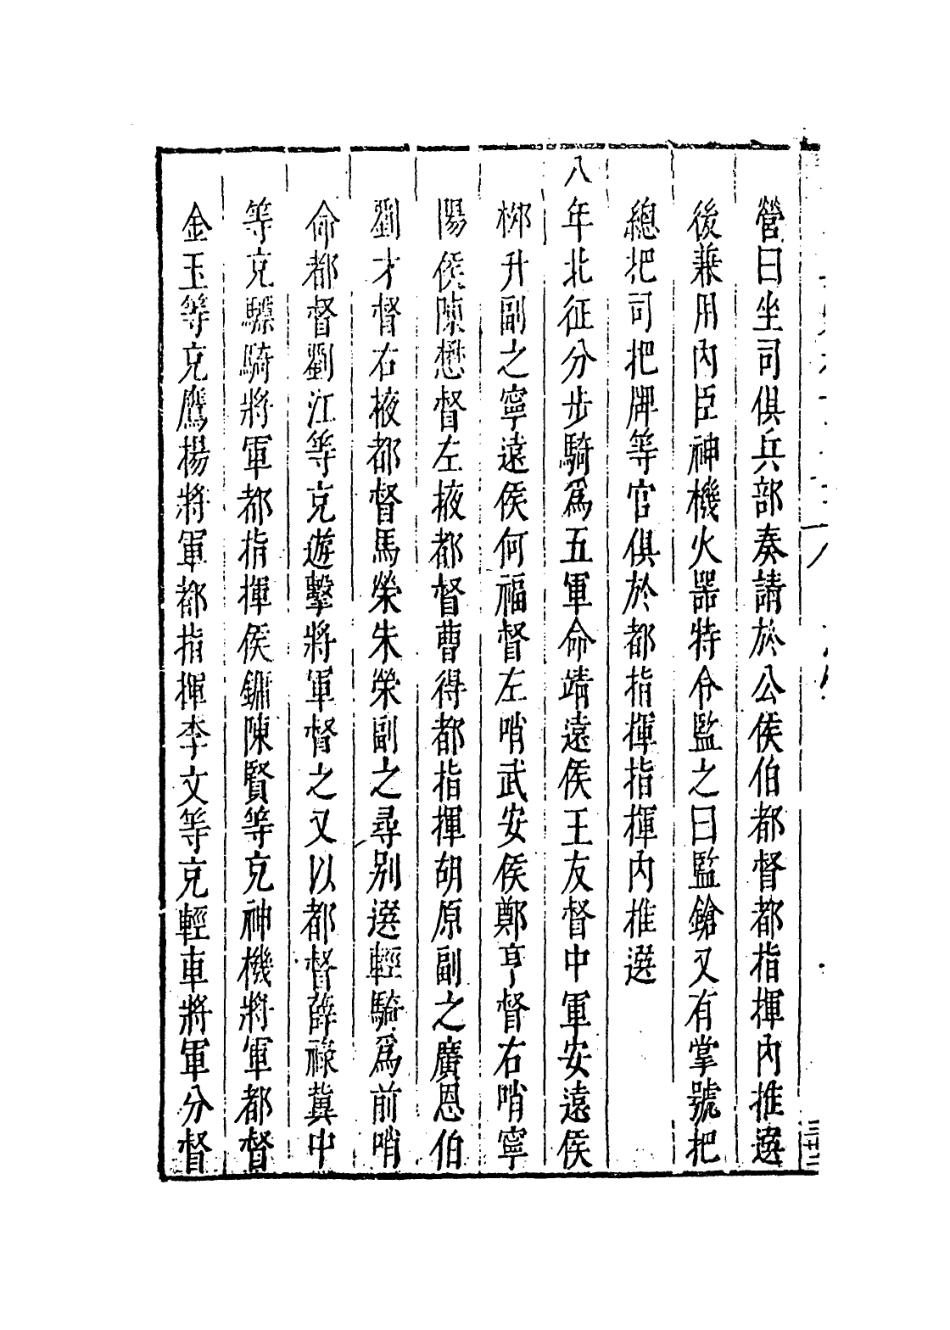 營曰坐司俱兵部奏請於公侯伯都督都指揮內推選
後兼用內臣神機火器特令監之曰監鎗又有掌號把
總把司把牌等官俱於都指揮指揮內推選
八年北征分步騎爲五軍命靖遠侯王友督中軍安遠侯
柳升副之寧遠侯何福督左哨武安侯鄭亨督右哨寧
陽侯陳懋督左掖都督曹得都指揮胡原副之廣恩伯
劉才督右掖都督馬榮朱榮副之尋別選輕騎爲前哨
命都督劉江等充遊擊將軍督之又以都督薛祿冀中
等充驃騎將軍都指揮侯鏞陳賢等充神機將軍都督
金玉等充鷹揚將軍都指揮李文等充輕車將軍分督